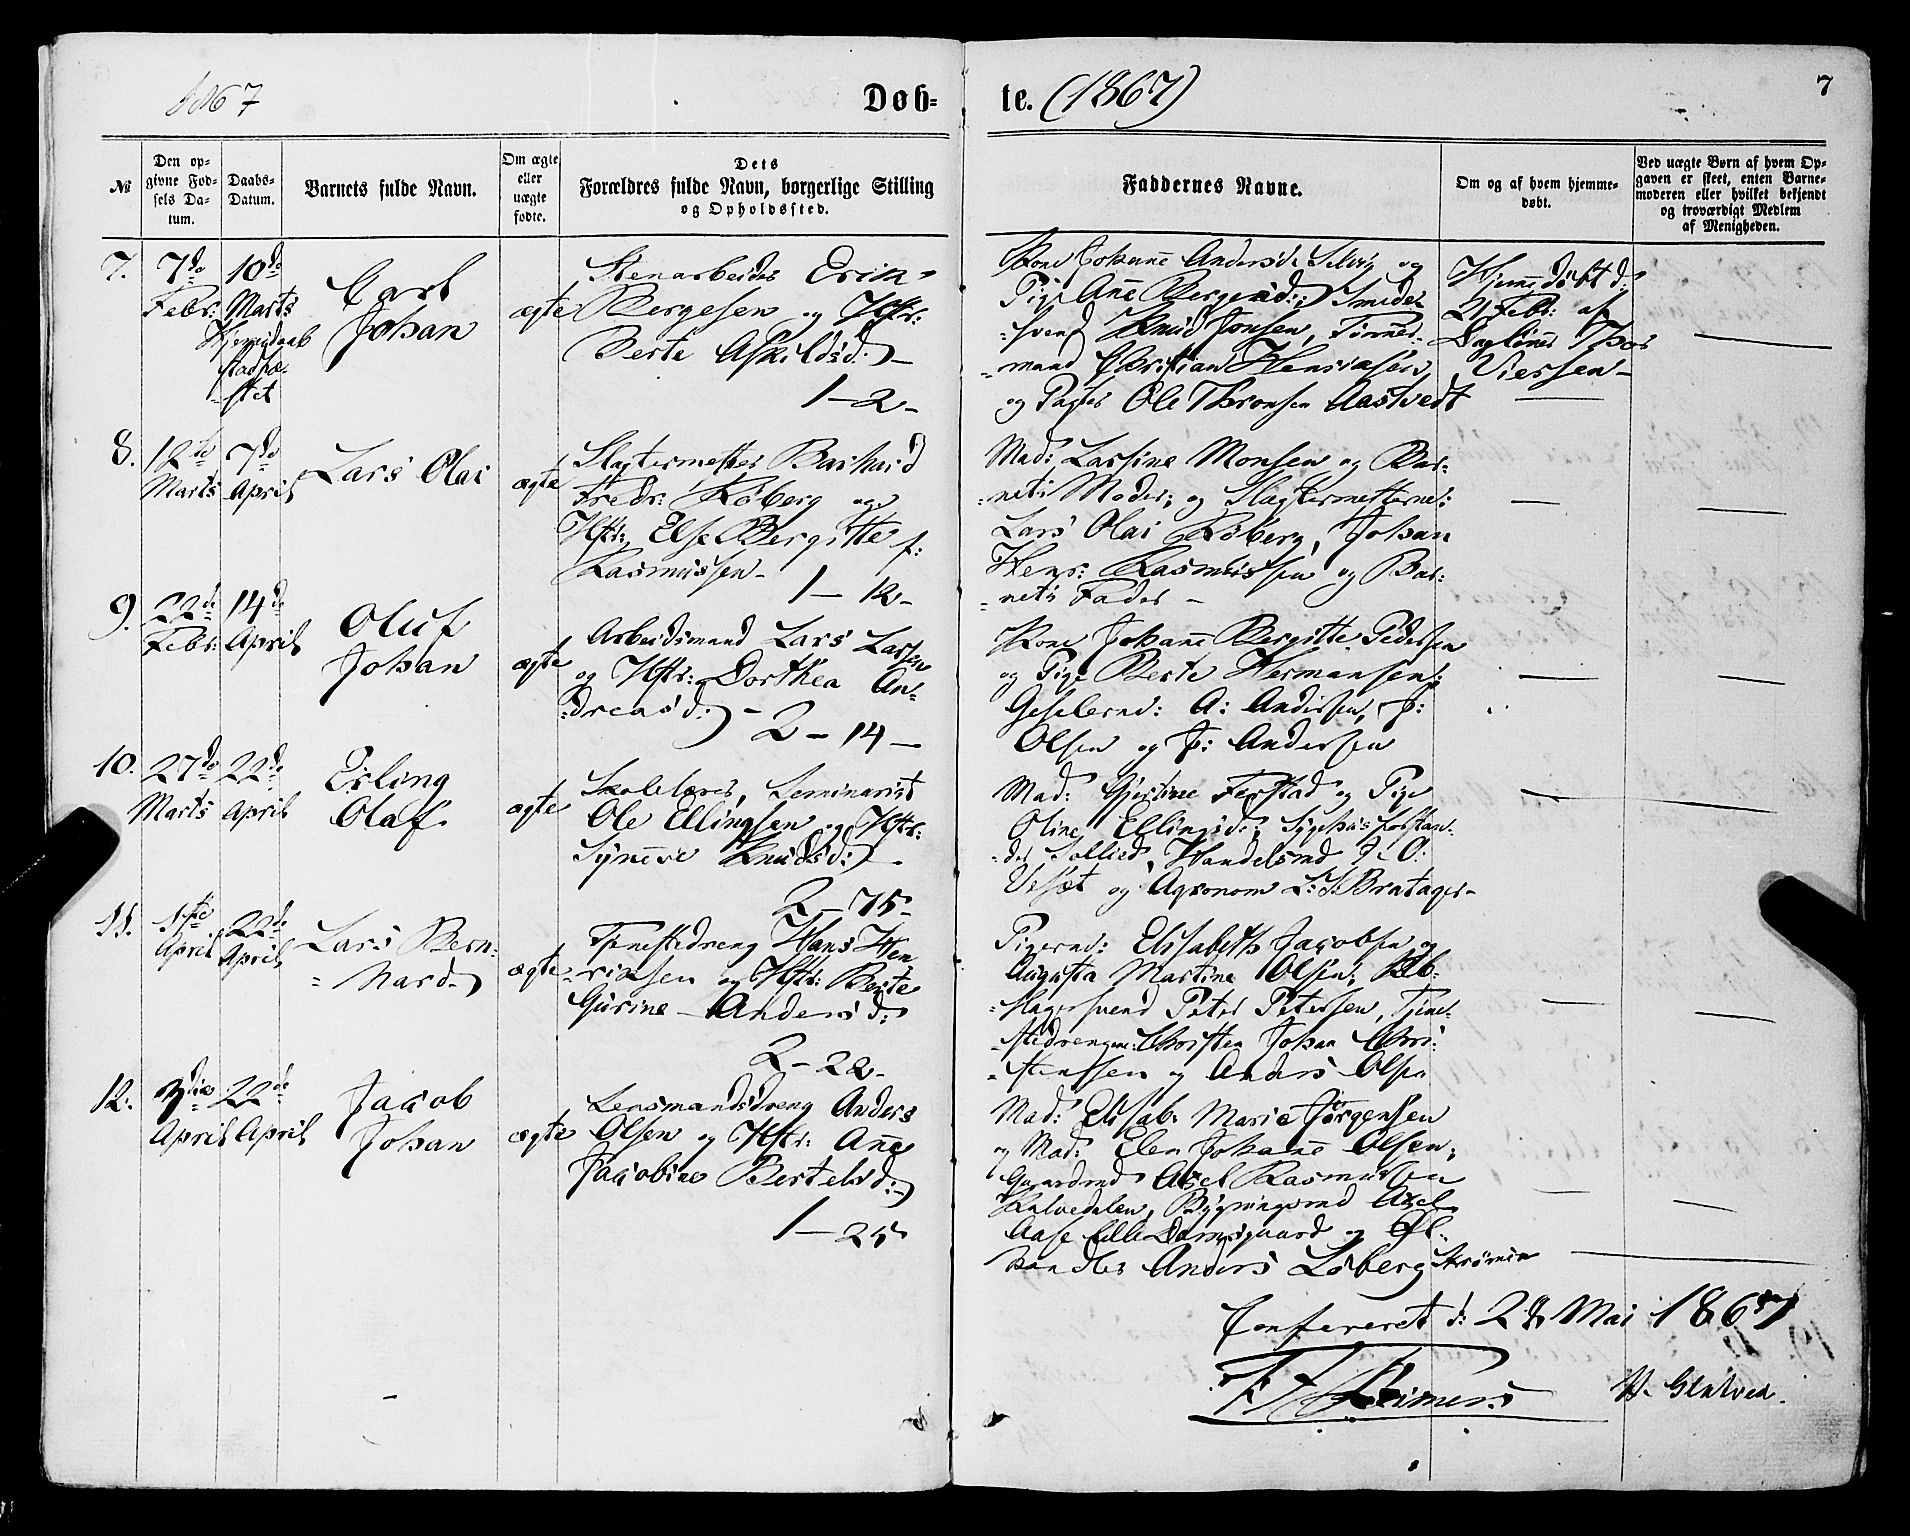 1867
Døb-
te. (1867)
7
№
Den op-
givne Fød-
sels Da-
tum.
Daabs-
Datum.
Barnets fulde Navn.
Om ægte
eller
uægte
fødte.
Dets
Forældres fulde Navn, borgerlige Stilling
og Opholdssted.
Faddernes Navne.
Om og af hvem hjemme-
døbt.
Ved uægte Børn af hvem Op-
gaven er skeet, enten Barne-
moderen eller hvilket bekjendt
og troværdigt Medlem
af Menigheden.
7.
7de
Febr:
10de
Marts
Hjemdaab
stadfæ-
stet
Carl
Johan
ægte
Stenarbeider Erik
Bergesen og Hstr:
Berte Askildsd:
1-2-
Kone Johanne Andersd: Selvig og
Pige Anne Bergesd:; Smede-
svend Knud Jonsen, Tømmer-
mand Christian Henriksen
og Pagter Ole Thronsen Aastvedt
Hjemmedøbt d:
21 Febr: af
Dagløner Thor
Viersen-
8.
12de
Marts
7de
April
Lars Olai
ægte
Slagtermester Barhard
Fredr: Røberg og
Hstr: Else Bergitte f:
Rasmussen-
1-12-
Mad: Lassine Monsen og Bar-
nets Moder; og Slagtermesterne:
Lars Olai Røberg, Johan
Henr: Rasmussen og Bar-
nets Fader-
9.
22de
Febr:
14de
April
Oluf
Johan
ægte
Arbeidsmand Lars Larsen
og Hstr: Dorthea An-
dreasd:-
2-14-
Kone Johanne Bergitte Pedersen
og Pige Berte Hermansen;
Geselerne: A: Andersen, P:
Olsen og P: Andersen
10.
27de
Marts
22de
April
Erling
Olaf
ægte
Skolelærer, Seminarist
Ole Ellingsen og Hstr:
Synneve Knudsd:
2-75-
Mad: Gjertine Ferstad og Pige
Oline Ellingsd:; Sygehusforstan-
der Sollied, Handelsmd J: O:
Vesæt og Agronom L: S: Bratager-
11.
1ste
April
22de
April
Lars Bern-
hard
ægte
Tjenestedreng Hans Hen
riksen og Hstr: Berte
Gurine Andersd:
2-22-
Pigerne: Elisabeth Jacobsen og
Augusta Martine Olsen; Kob-
berslagersvend Peter Petersen, Tjene-
stedrengene: Christen Johan Chri-
stensen og Anders Olsen
12.
3die
April
22de
April
Jacob
Johan
ægte
Lensmandsdreng Anders
Olsen og Hstr: Anne
Jacobine Bertelsd:
1-25
Mad: Elisab: Marie Jørgensen
og Mad: Elen Johanne Olsen;
Gaardmd Axel Rasmussen
Kalvedalen, Bygningsmd Axel
Aase Damsgaard og Øl-
handler Anders Løberg Strømen
Confereret d: 28 Mai 1867
F. Reimers